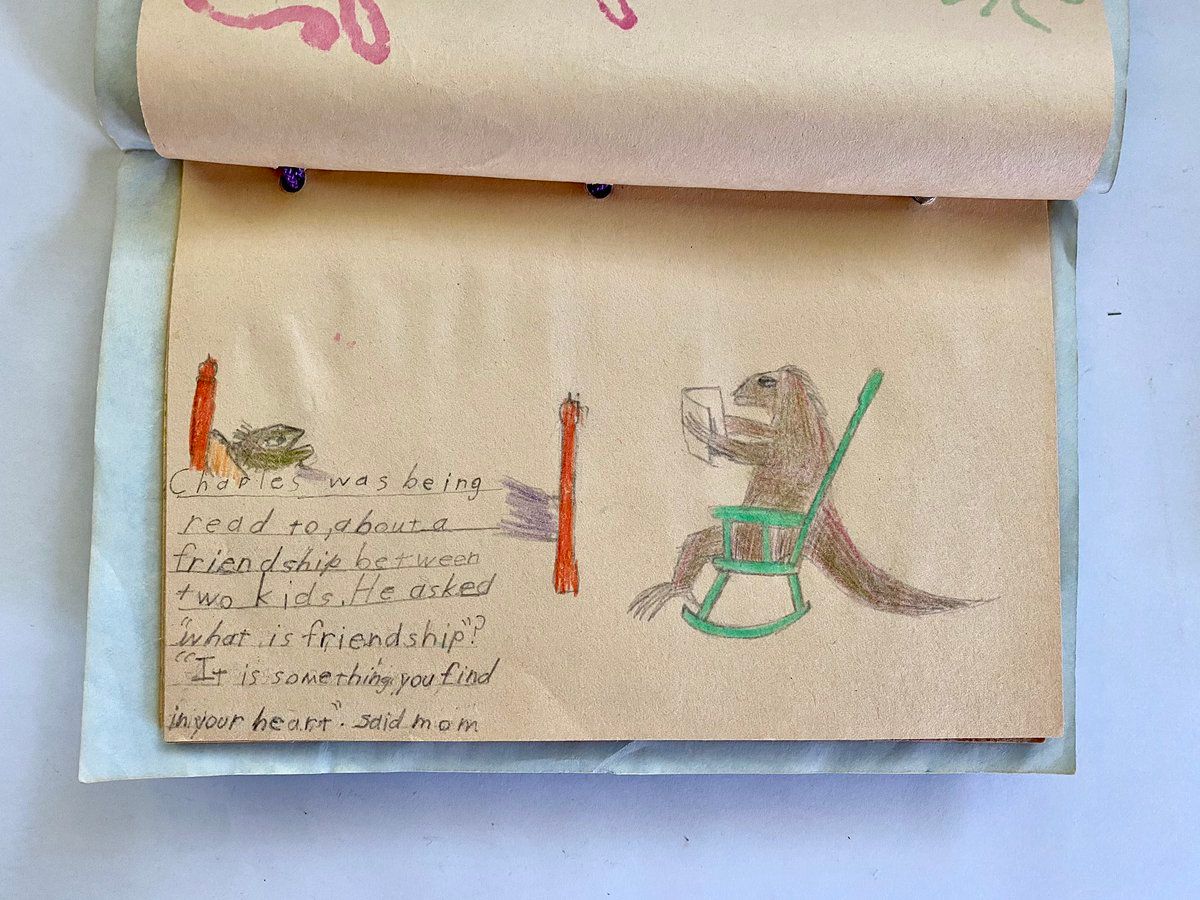 Charles was being
read to, about a
friendship between
two kids. He asked
"what is friendship"?
"It is something you find
in your heart". said mom